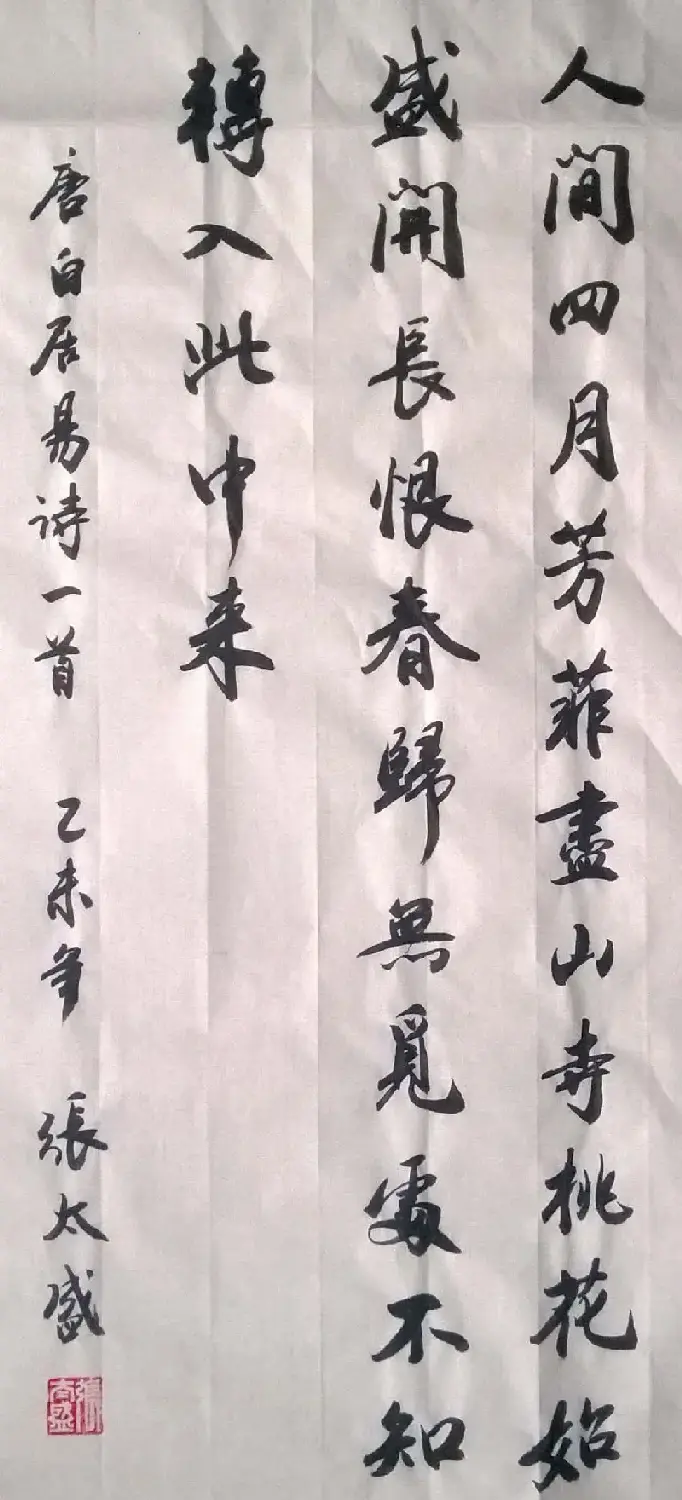 人間四月芳菲盡山寺桃花始
盛開長恨春歸無覓處不知
轉入此中来
唐白居易诗一首 乙未年 張太盛
張太盛